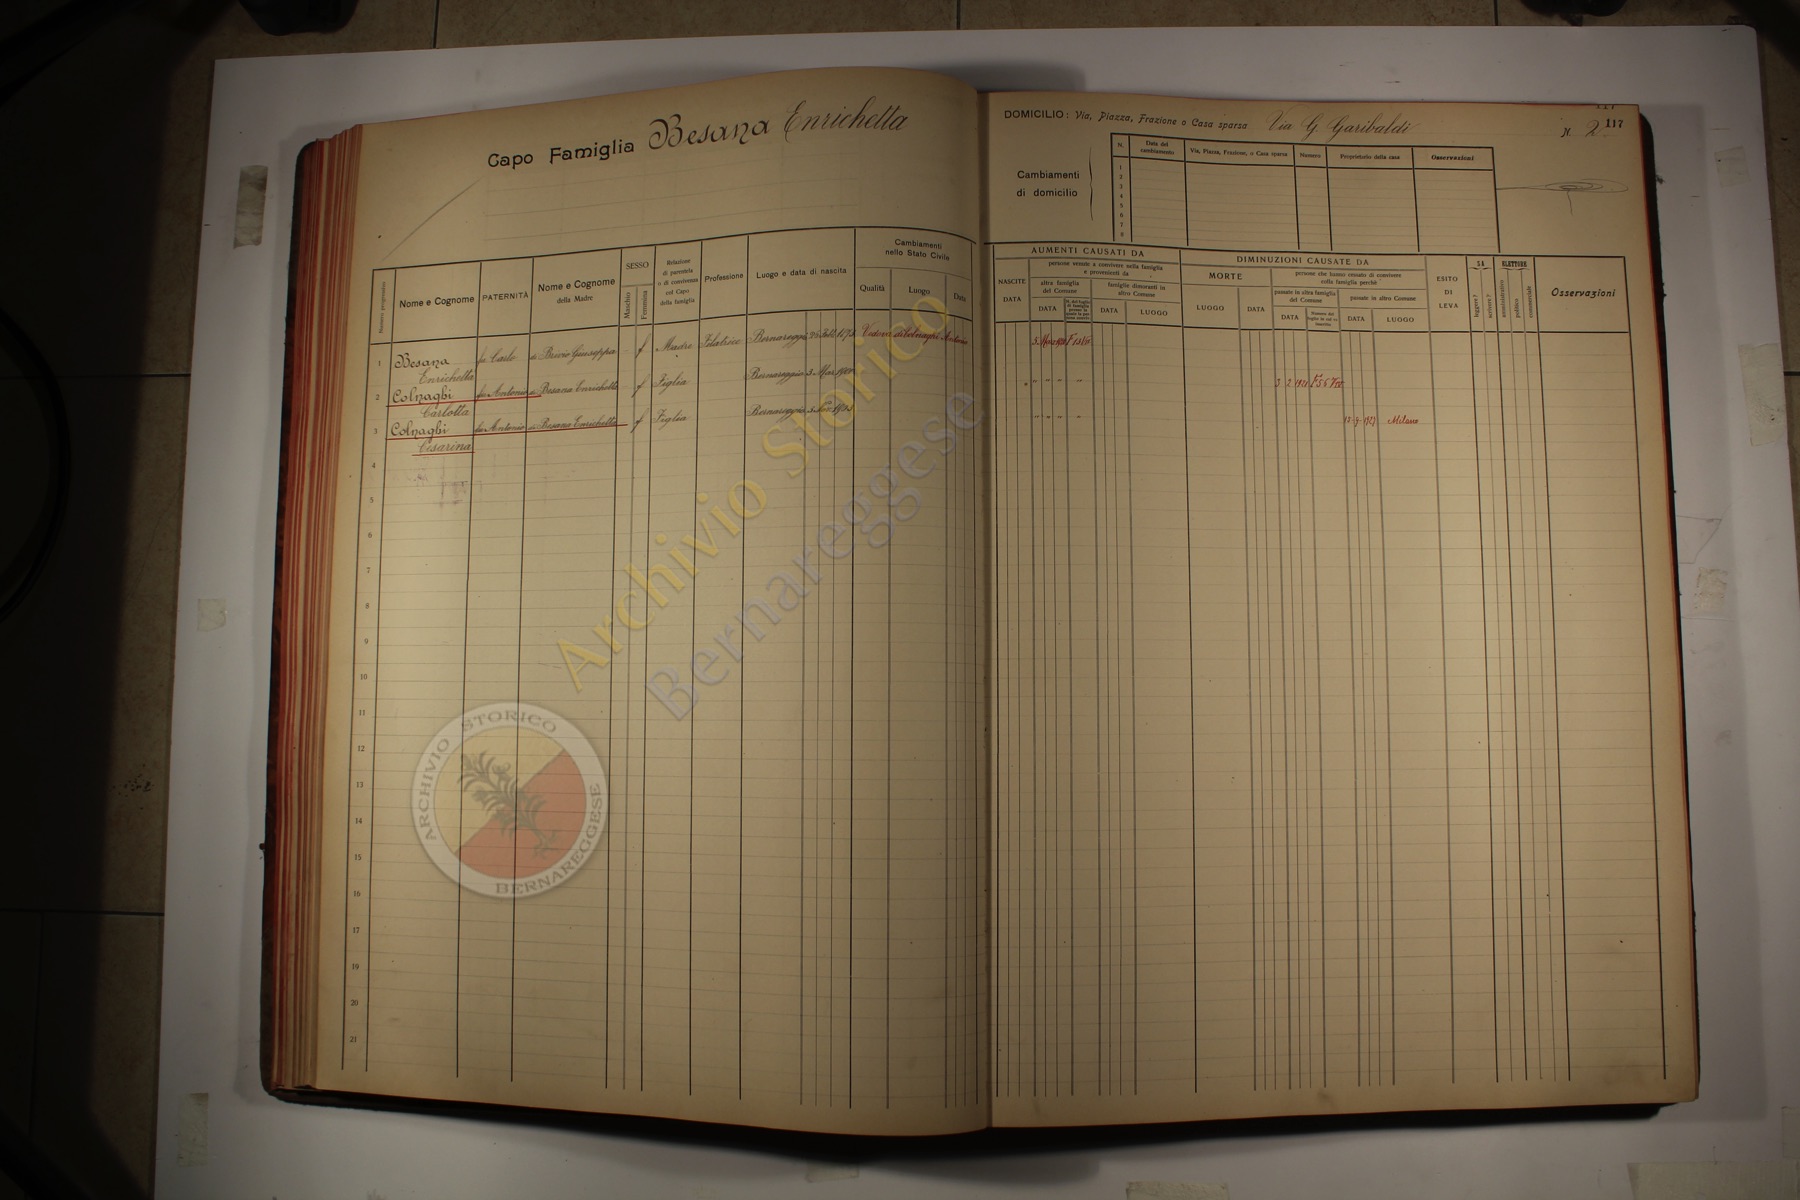 Capo Famiglia Besana Enrichetta
DOMICILIO: Via, Piazza, Frazione o Casa sparsa Via G. Garibaldi N. 2
117
Cambiamenti
di domicilio
N.
Data del
cambiamento
Via, Piazza, Frazione, o Casa sparsa
Numero
Proprietario della casa
Osservazioni
1
2
3
4
5
6
7
8
Numero progressivo
Nome e Cognome
PATERNITÀ
Nome e Cognome
della Madre
SESSO
Maschio
Femmina
Relazione
di parentela
o di convivenza
col Capo
della famiglia
Professione
Luogo e data di nascita
Cambiamenti
nello Stato Civile
Qualità
Luogo
Data
AUMENTI CAUSATI DA
NASCITE
DATA
persone venute a convivere nella famiglia
e provenienti da
altra famiglia
del Comune
DATA
famiglie dimoranti in
altro Comune
DATA
LUOGO
DIMINUZIONI CAUSATE DA
MORTE
LUOGO
DATA
persone che hanno cessato di convivere
nella famiglia perchè
passate in altra famiglia
del Comune
DATA
passate in altro Comune
DATA
LUOGO
ESITO
DI
LEVA
SA
leggere?
scrivere?
ELETTORE
amministrativo
politico
commerciale
Osservazioni
1 Besana fu Carlo di Brivio Giuseppa f Madre Filatrice Bernareggio Vedova di Colnaghi Antonio
Enrichetta
2 Colnaghi fu Antonio di Besana Enrichetta f Figlia Bernareggio 3 2 1921
Carlotta
3 Colnaghi fu Antonio di Besana Enrichetta f Figlia Bernareggio Milano
Cesarina
4
5
6
7
8
9
10
11
12
13
14
15
16
17
18
19
20
21
Archivio Storico
Bernareggese
ARCHIVIO STORICO
BERNAREGGESE